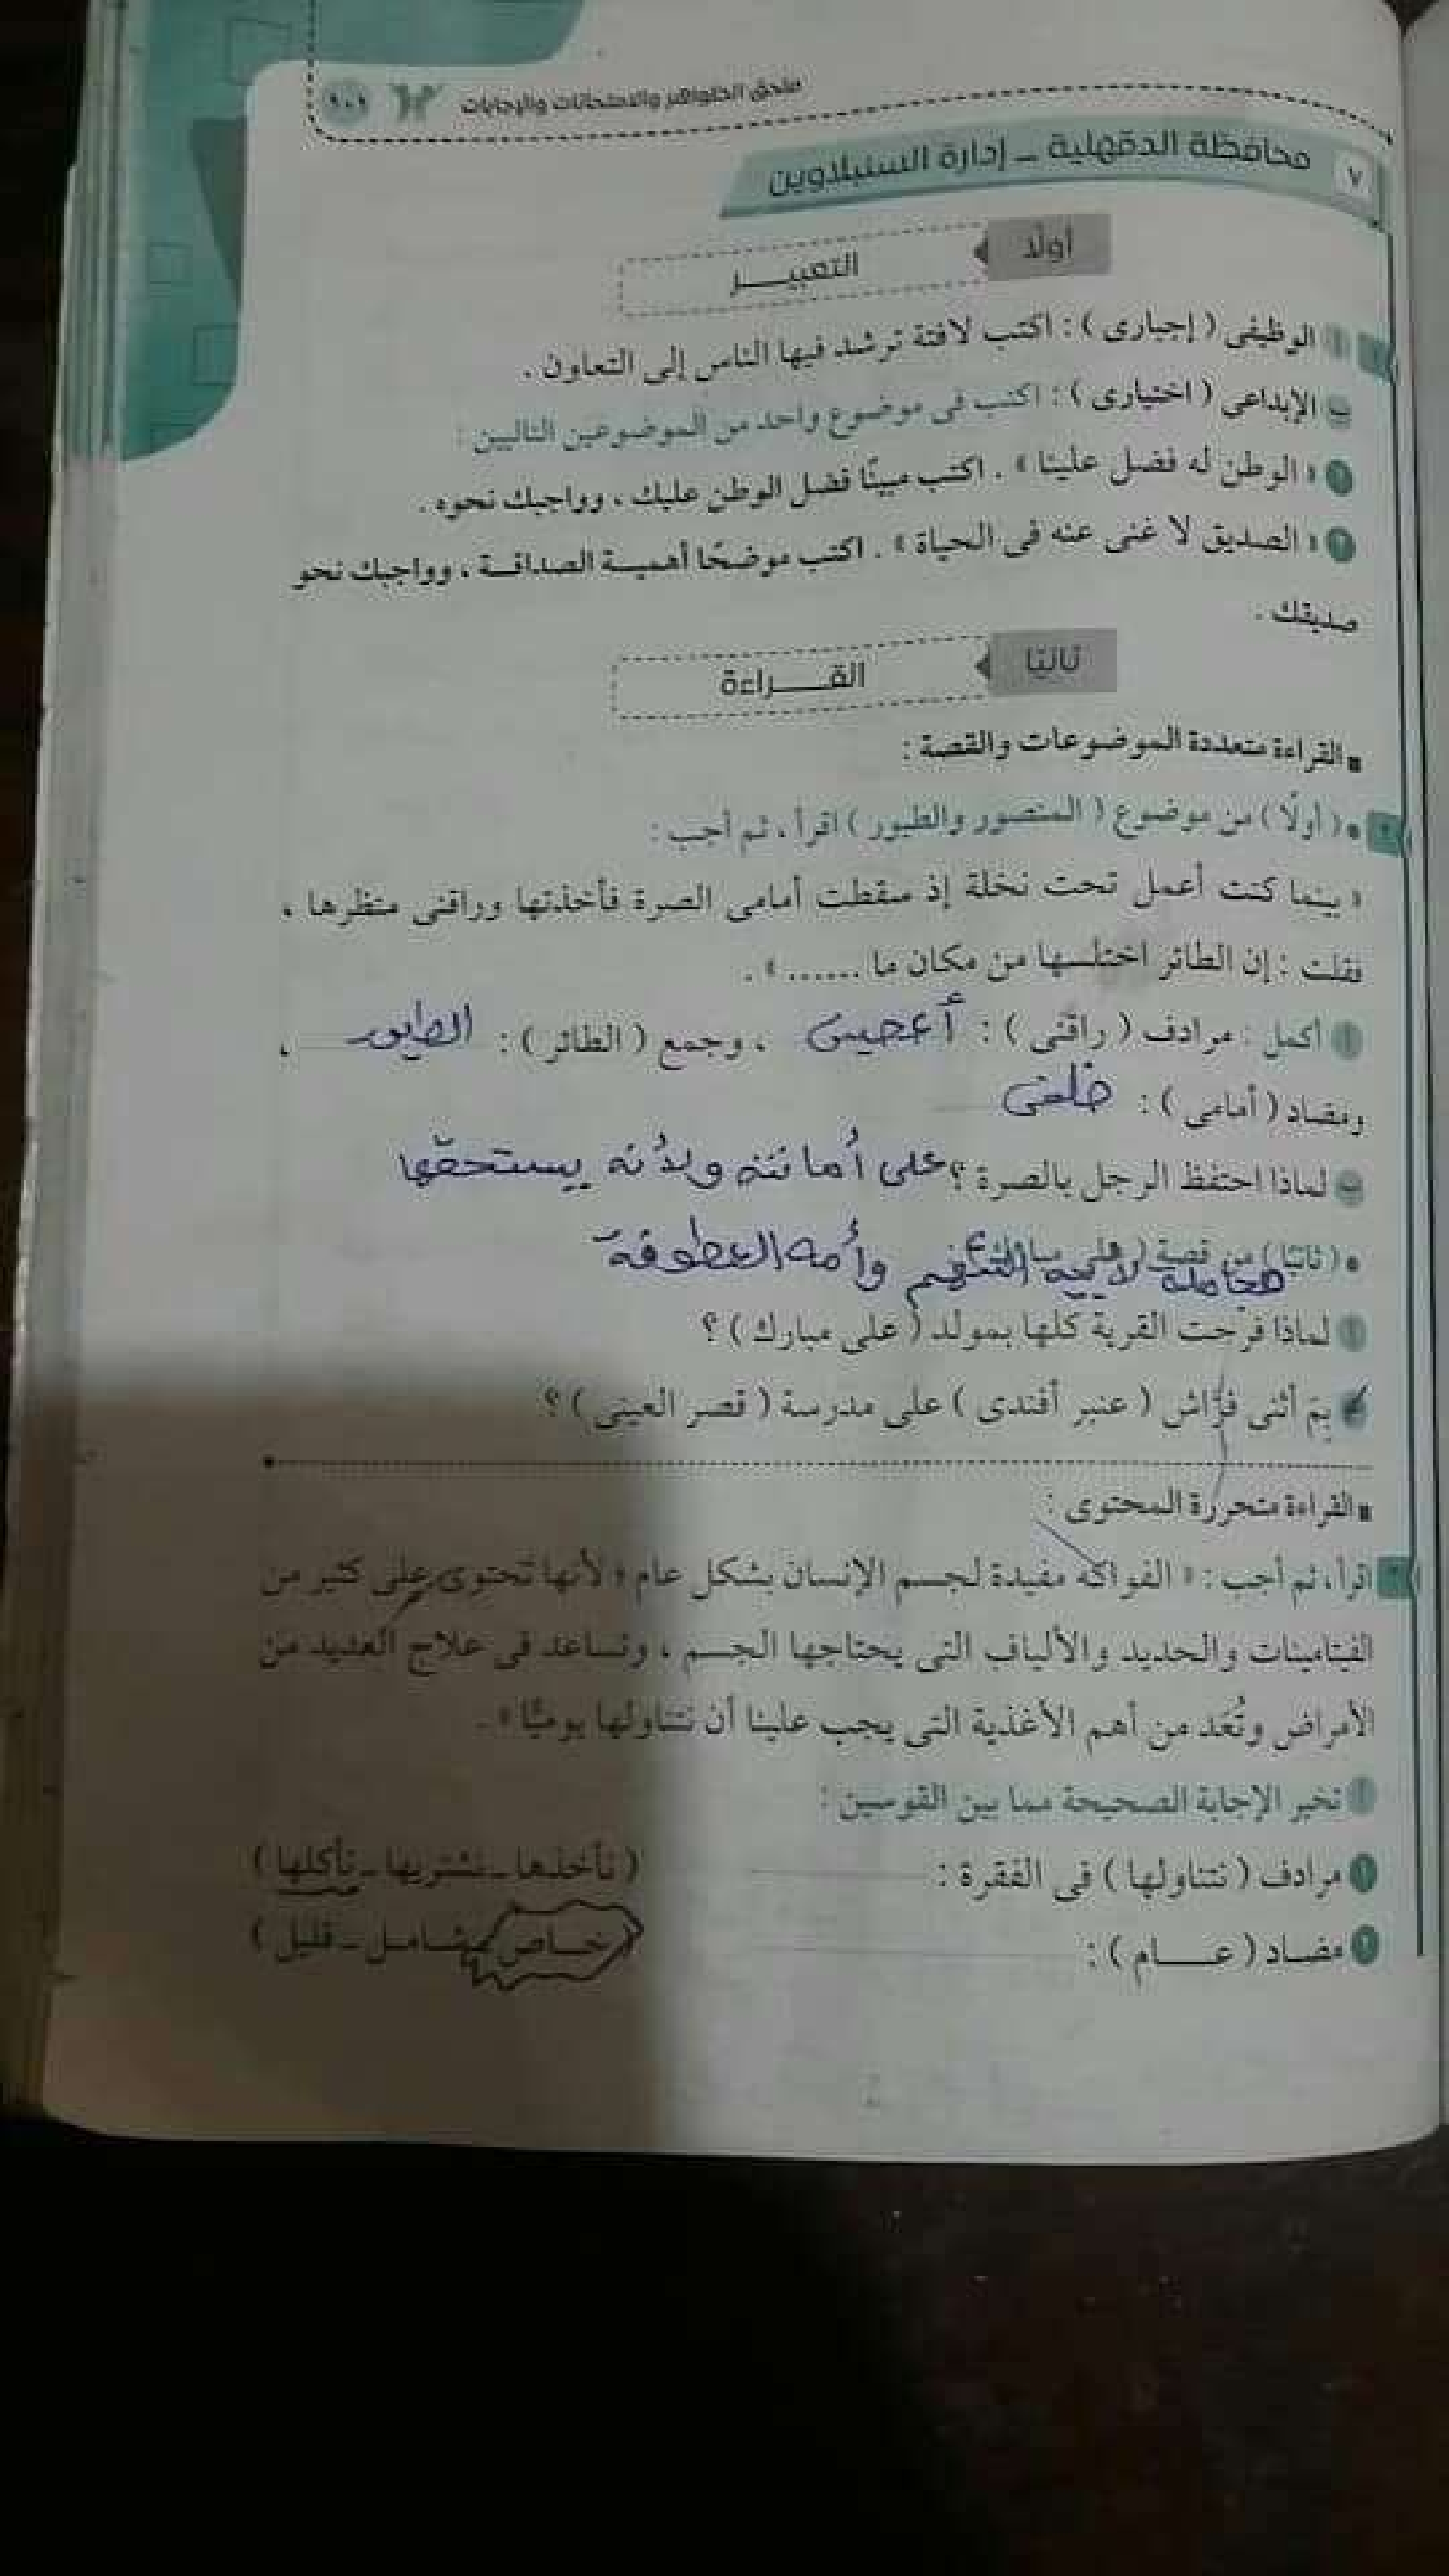 ملحق الظواهر والامتحانات والإجابات
٧ محافظة الدقهلية – إدارة السنبلاوين
أولًا
التعبيـــر
١ أ الوظيفى ( إجبارى ) : اكتب لافتة ترشد فيها الناس إلى التعاون .
ب الإبداعى ( اختيارى ) : اكتب فى موضوع واحد من الموضوعين التاليين :
١ « الوطن له فضل علينا » . اكتب مبينًا فضل الوطن عليك ، وواجبك نحوه .
٢ « الصديق لا غنى عنه فى الحياة » . اكتب موضحًا أهميـة الصداقـة ، وواجبك نحو
صديقك .
ثانيًا
القـــراءة
■ القراءة متعددة الموضوعات والقصة :
٢ • ( أولًا ) من موضوع ( المنصور والطيور ) اقرأ ، ثم أجب :
« بينما كنت أعمل تحت نخلة إذ سقطت أمامى الصرة فأخذتها وراقنى منظرها ،
فقلت : إن الطائر اختلسها من مكان ما ...... » .
أ أكمل : مرادف ( راقنى ) : ، وجمع ( الطائر ) : الطيور ،
ومضاد ( أمامى ) : خلفى
ب لماذا احتفظ الرجل بالصرة ؟ على أمانته ولأنه يستحقها
• ( ثانيًا ) من قصة ( على مبارك )
معاملة لأبيه وأمه العطوفة
أ لماذا فرحت القرية كلها بمولد ( على مبارك ) ؟
ب بِمَ أثنى فرَّاش ( عنبر أفندى ) على مدرسة ( قصر العينى ) ؟
■ القراءة متحررة المحتوى :
٣ اقرأ ، ثم أجب : « الفواكه مفيدة لجسم الإنسان بشكل عام ؛ لأنها تحتوى على كثير من
الفيتامينات والحديد والألياف التى يحتاجها الجسم ، وتساعد فى علاج العديد من
الأمراض وتُعَد من أهم الأغذية التى يجب علينا أن نتناولها يوميًّا » .
أ تخير الإجابة الصحيحة مما بين القوسين :
١ مرادف ( نتناولها ) فى الفقرة : ( نأخذها – نشتريها – نأكلها )
٢ مضاد ( عـــام ) : ( خـاص – شامـل – قليل )